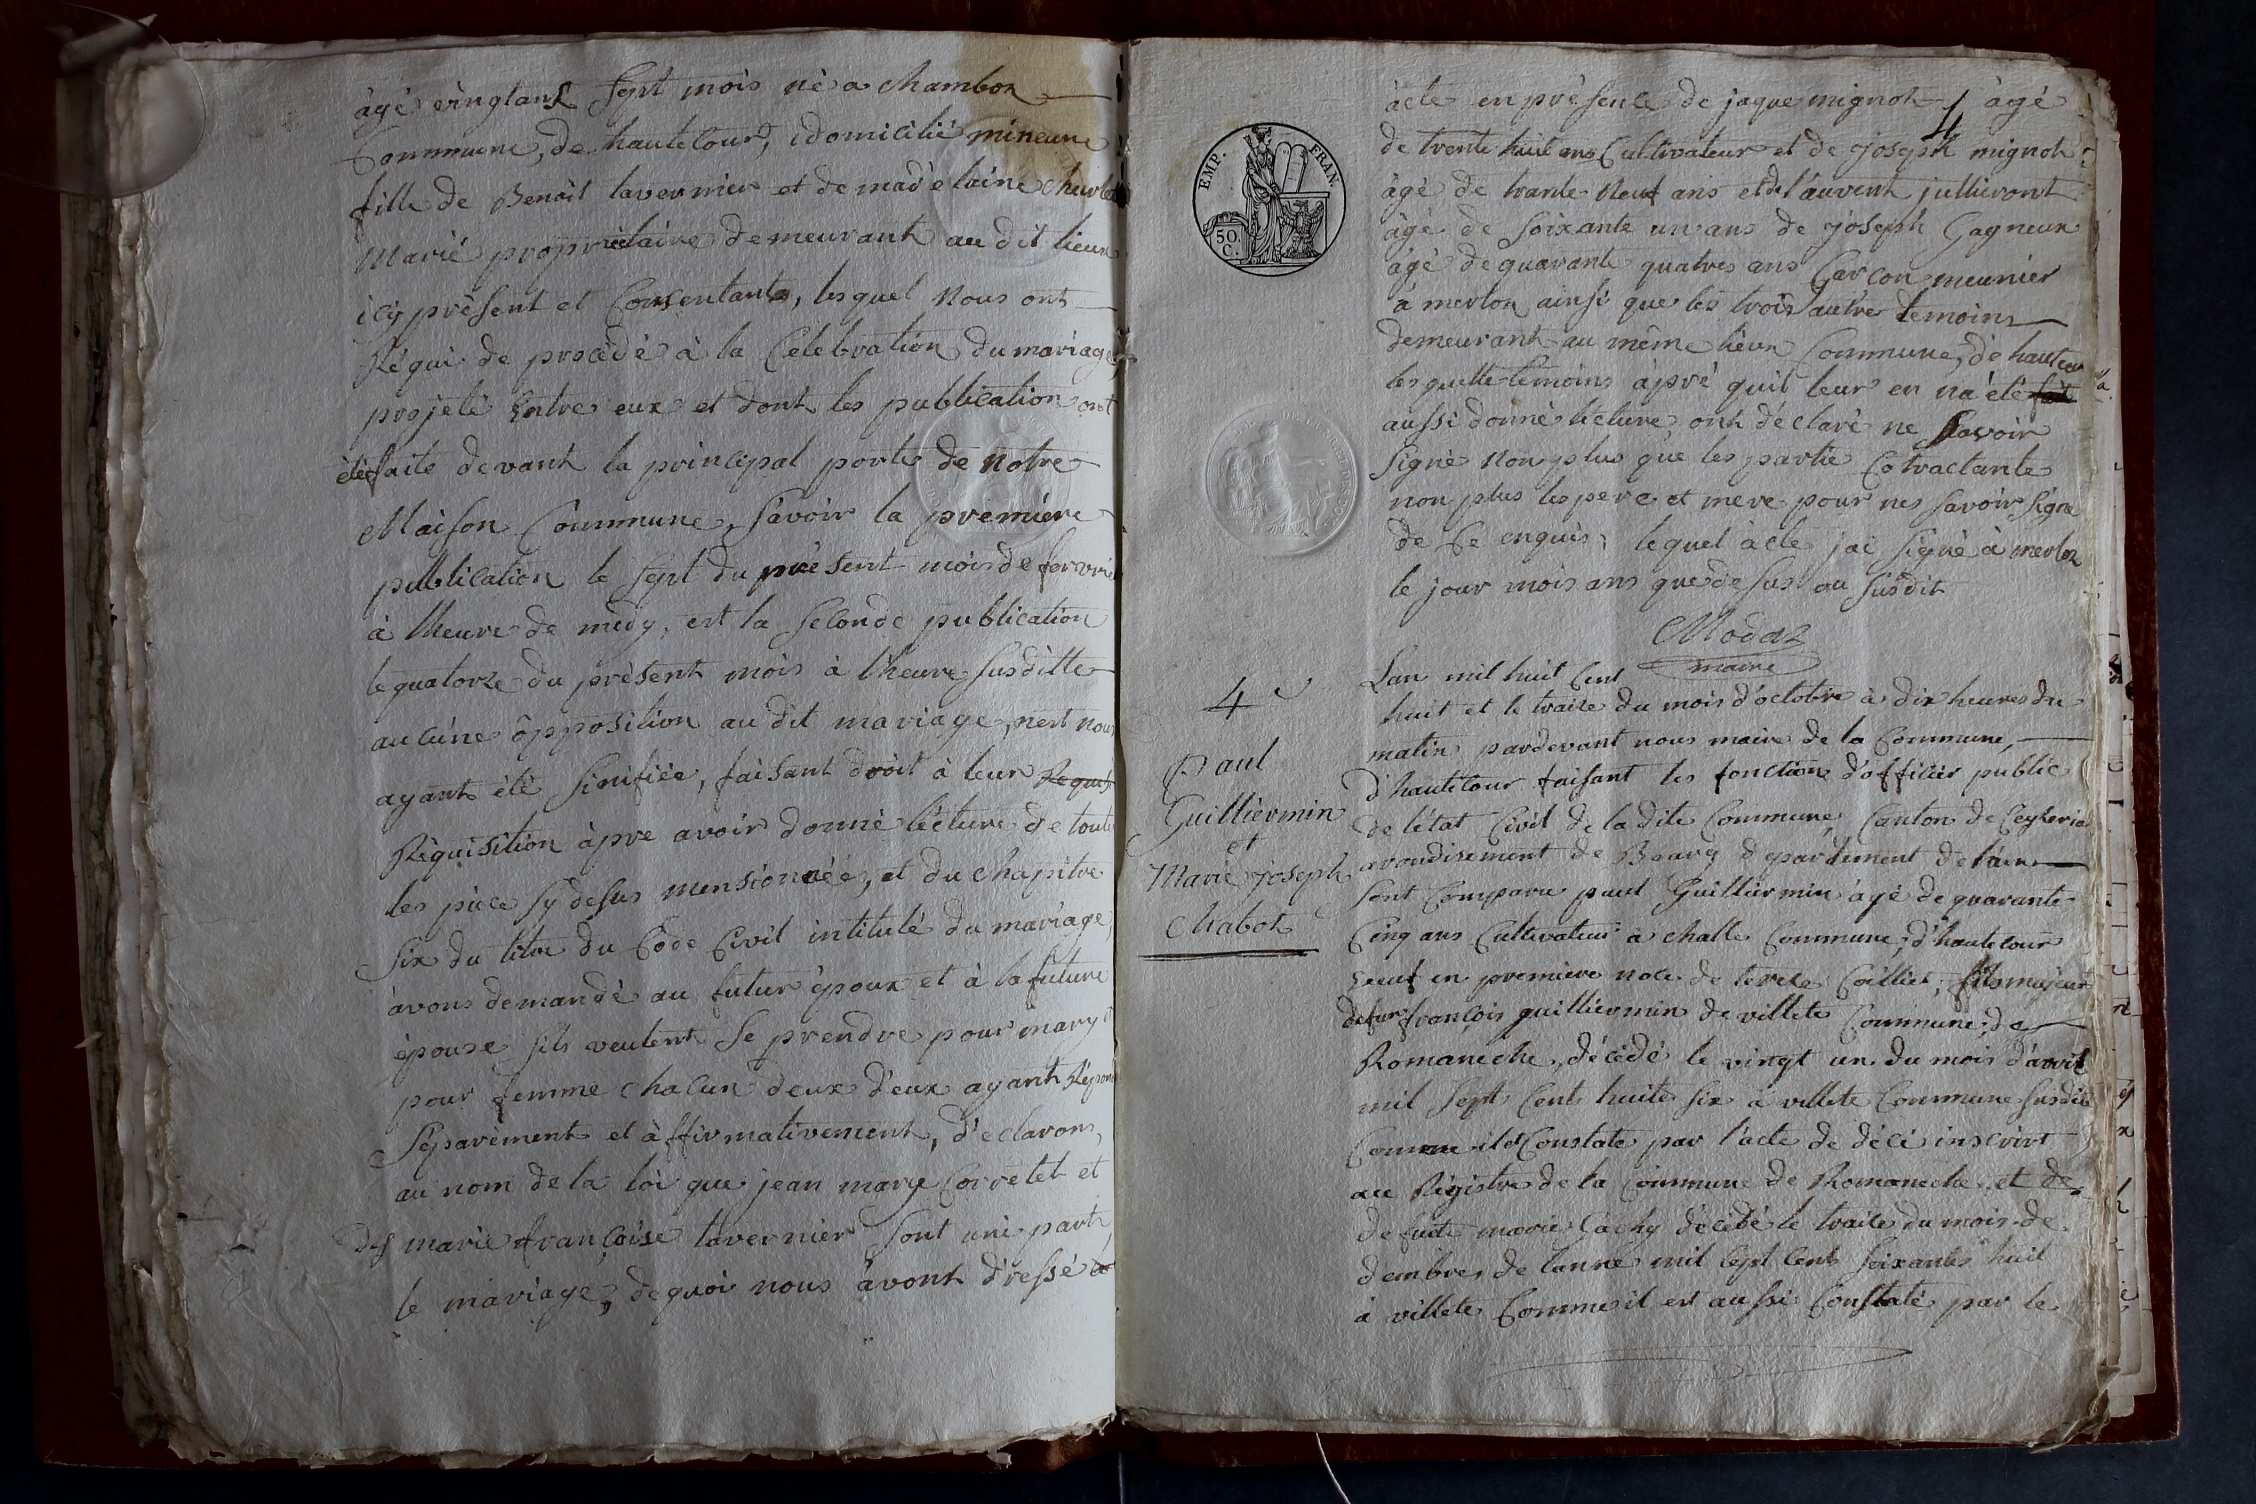 àgé vingtans Sept mois né a Chambon
Commune, de hautecour, domicilié mineure
fille de Benoit tavernier et de mad'elaine
Marié propriétaire demeurant au dit lieux
icy présent et Consentants, lesquel Nous ont
Réqui de procédé à la Celebration du mariage
projeté Entre eux et dont les publication ont
été faite devant la principal porte de Notre
Maison Commune, Savoir la première
publication le Sept du présent mois de fervrier
à lheure de midy, est la Seconde publication
le quatorze du présent mois à lheure Susditte
aucune opposition au dit mariage, nest nous
ayant été Sinifiée, faisant droit à leur Requis
Réquisition àpre avoir donné lécture de toute
les pièce Sy desus mensionnéé, et du chapitre
Six du titre du Code Civil intitulé du mariage,
àvons demandé au futur époux et à la future
épouse sils veulent Se prendre pour mary
pour femme chacun deux d'eux ayant Répond
Séparément et àffirmativement, d'eclarons,
au nom de la loi que jean marye Corretet et
marie françoise tavernier Sont uni par
le mariage, dequoi nous àvont dressé
EMP. FRAN.
50. C.
4
àcte en présence de jaque mignot àgé
de trente huit ans Cultivateur et de joseph mignot
àgé de trante Neuf ans et de l'auvent jullieront
àgé de Soixante un ans de joseph Gagneux
àgé de quarante quatres ans Garcon meunier
à merlon ainsi que les trois autre temoins
demeurant au même lieux Commune, de hautecour
lesquelle temoins àpré quil leur en na été fait
aussi donné lécture, ont déclaré ne Savoir
Signé Non plus que les partie Cotractante
non plus les pere et mere pour nes Savoir Signe
de Ce enquis, lequel àcte jai Signé à merlon
le jour mois ans que desus ou Susdit
Modas
maire
4e
Paul
Guilliermin
et
Marie joseph
Chabot
Lan mil huit Cent
huit et le traize du mois d'octobre à dix heures du
matin pardevant nous maire de la Commune,
d'hautecour faisant les fonction d'officier public
de l'état Civil de ladite Commune, Canton de Ceyzeria
arondisement de Bourg département de lain
Sont Comparu paul Guilliermin àgé de quarante
Cinq ans Cultivateur à challe Commune, d'hautecour
veuf en premiere noce de terese Caillier, fils majeur
defunt françois guilliermin de villete Commune, de
Romaneche, décédé le vingt un du mois d'avril
mil Sept Cent huite Six à villete Commune Susdite
Comme il est Constate par l'acte de décé inscrirt
au Régistre de la Commune de Romaneche et de
de fuite marie Gachy décédé le traize du mois de
dembres de lanne mil Sept Cent Soixante huit
à villete Comme il est aussi Constaté par le